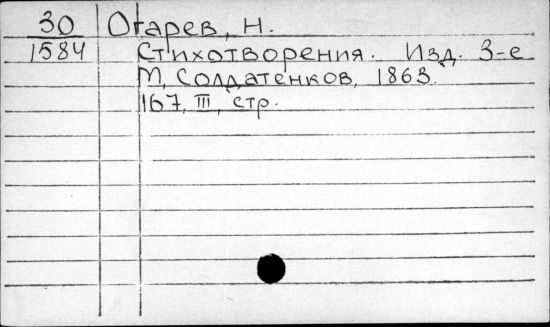 30 Огарев, Н.
1584 Стихотворения. Изд. 3-е
М, Солдатенков, 1863.
167, III, стр.